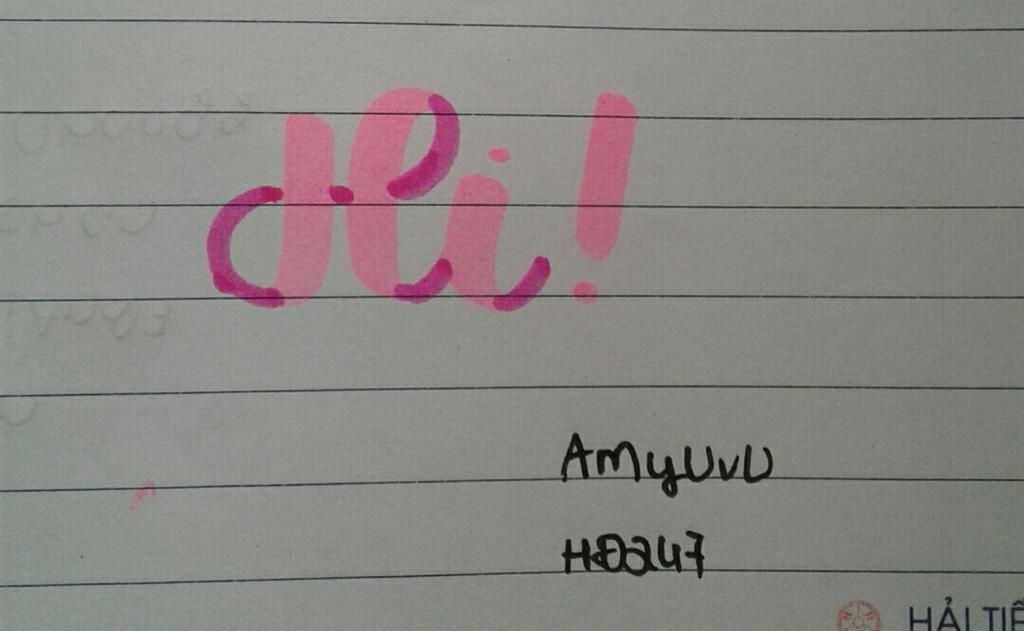 Hi!
AMyUvU
HĐ247
HẢI TIẾ